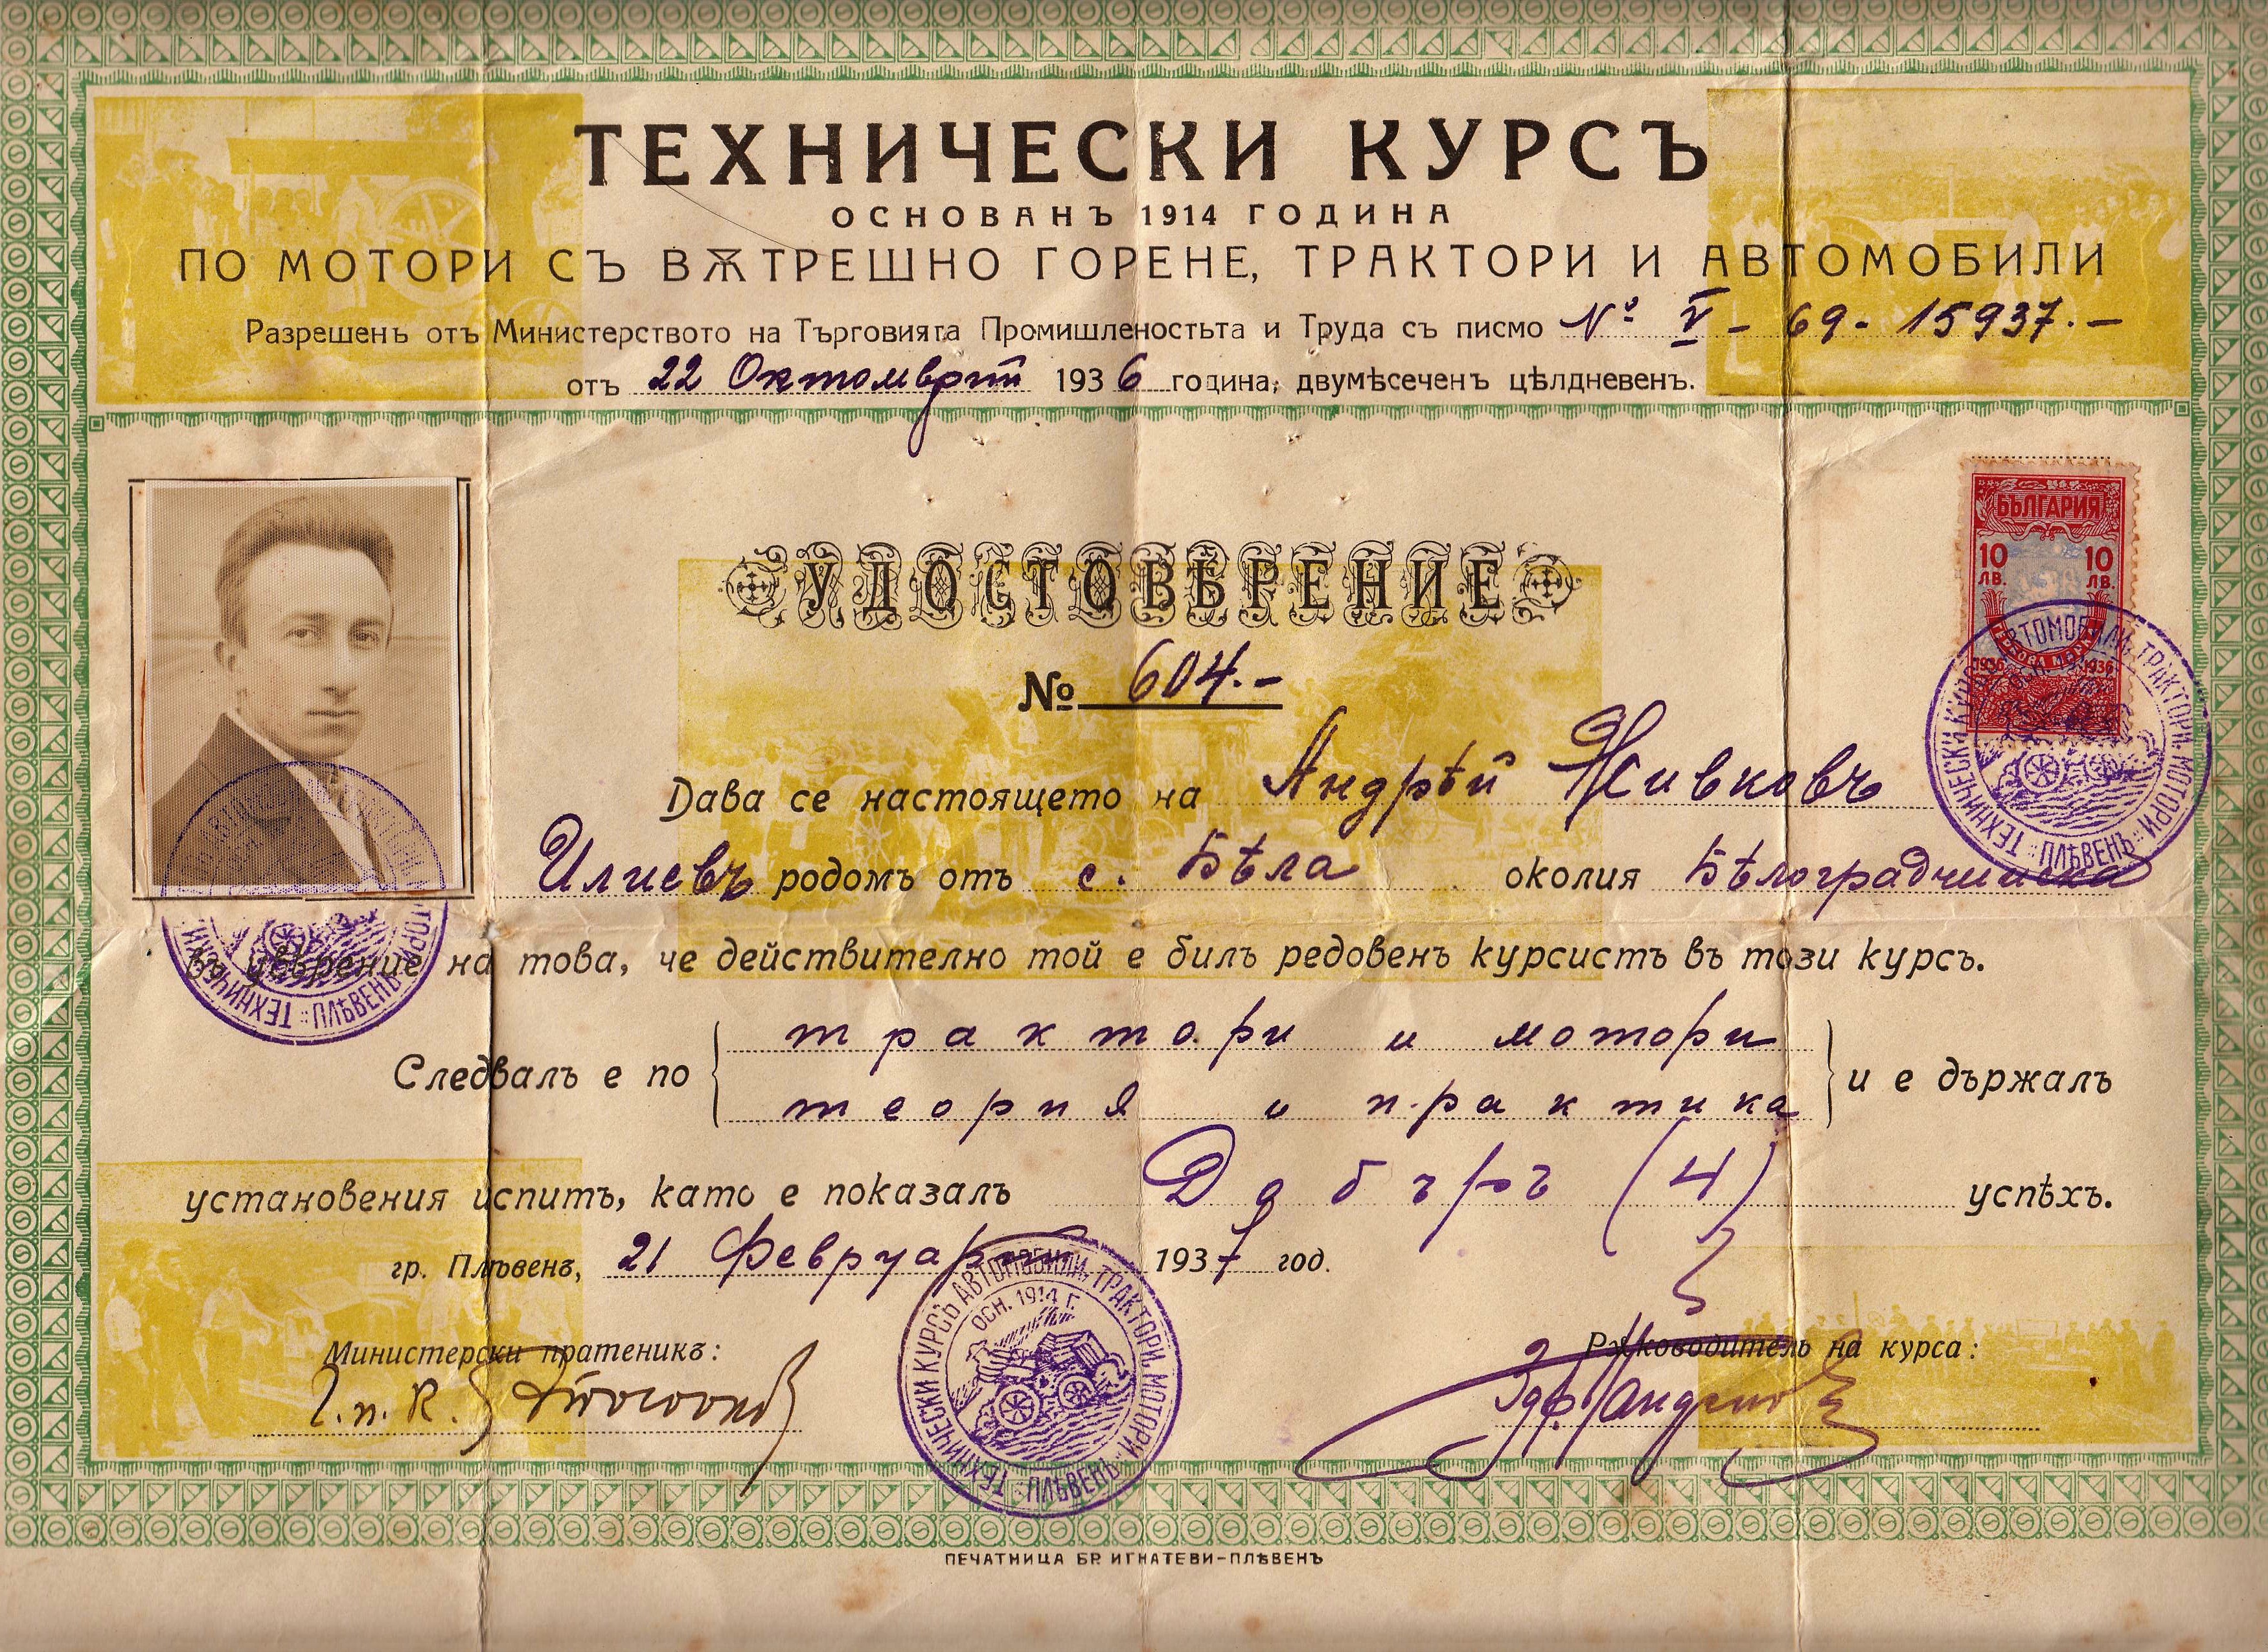 ТЕХНИЧЕСКИ КУРСЪ
ОСНОВАНЪ 1914 ГОДИНА
ПО МОТОРИ СЪ ВѪТРЕШНО ГОРЕНЕ, ТРАКТОРИ И АВТОМОБИЛИ
Разрешенъ отъ Министерството на Търговията Промишленостьта и Труда съ писмо № V - 69 - 15937.-
отъ 22 Октомврий 1936 година, двумѣсеченъ цѣлдневенъ.
БЪЛГАРИЯ
10 ЛВ. 10 ЛВ.
ГЕРБОВА МАРКА
1936 1936
УДОСТОВѢРЕНИЕ
№ 604.-
Дава се настоящето на Андрѣй Живковъ
Илиевъ родомъ отъ с. Бѣла околия Бѣлоградчишка
въ увѣрение на това, че действително той е билъ редовенъ курсистъ въ този курсъ.
Следвалъ е по трактори и мотори
теория и практика и е държалъ
установения испитъ, като е показалъ Добъръ (4) успѣхъ.
гр. Плѣвенъ, 21 Февруарий 1937 год.
Министерски пратеникъ:
Рѫководитель на курса:
ТЕХНИЧЕСКИ КУРСЪ АВТОМОБИЛИ, ТРАКТОРИ, МОТОРИ. ПЛѢВЕНЪ
ОСН. 1914 Г.
ПЕЧАТНИЦА БР. ИГНАТЕВИ-ПЛѢВЕНЪ